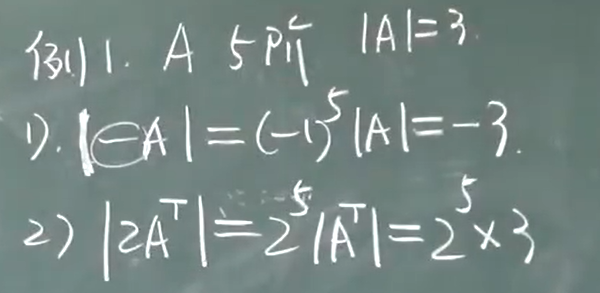 例1. A 5阶 |A|=3.
1). |-A|=(-1)^5|A|=-3.
2) |2A^T|=2^5|A^T|=2^5×3